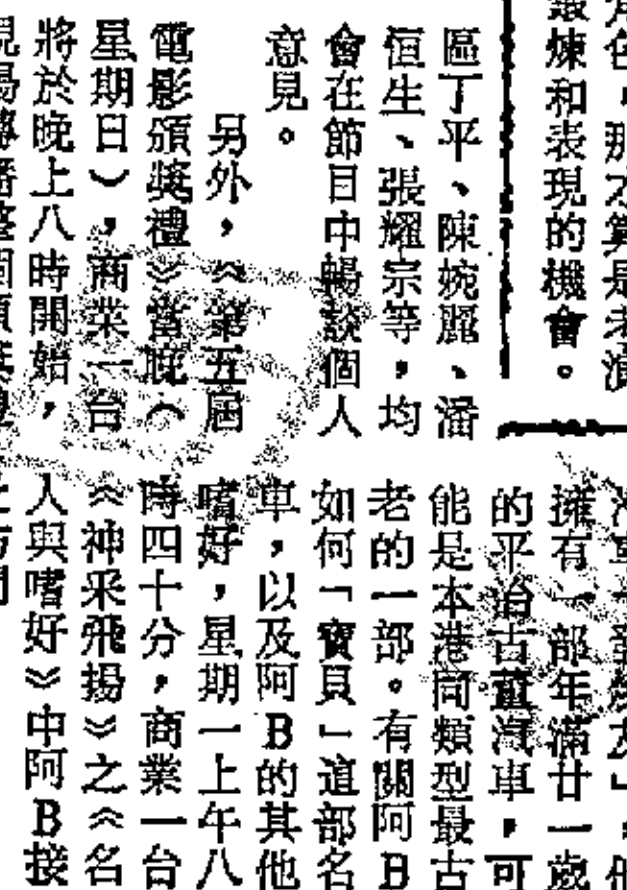 角色,那才算是老演
鍛煉和表現的機會。
區丁平、陳婉麗、潘
恒生、張耀宗等,均
會在節目中暢談個人
意見。
另外,《第五屆
電影頒獎禮》當晚(
星期日),商業一台
將於晚上八時開始,
現場轉播整個頒獎禮
擁有一部年滿廿一歲
的平治古董汽車,可
能是本港同類型最古
老的一部。有關阿B
如何「寶貝」這部名
車,以及阿B的其他
嗜好,星期一上午八
時四十分,商業一台
《神采飛揚》之《名
人與嗜好》中阿B接